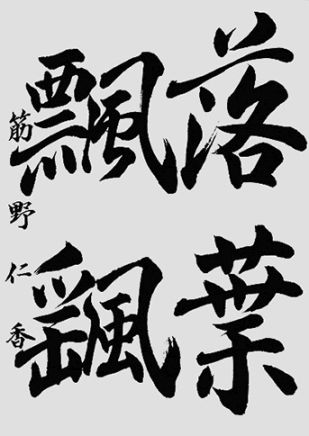 落葉
飄颻
筋野仁香